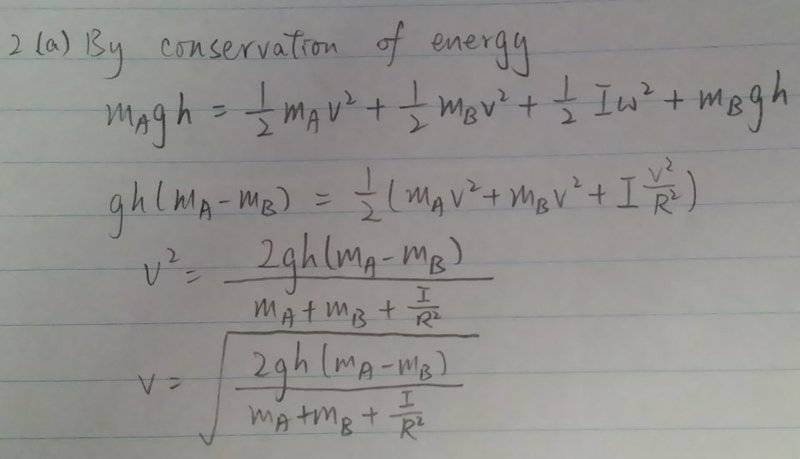 2 (a) By conservation of energy
m_A gh = 1/2 m_A v² + 1/2 m_B v² + 1/2 I ω² + m_B gh
gh(m_A - m_B) = 1/2 (m_A v² + m_B v² + I v²/R²)
v² = 2gh(m_A - m_B) / (m_A + m_B + I/R²)
v = √(2gh(m_A - m_B) / (m_A + m_B + I/R²))